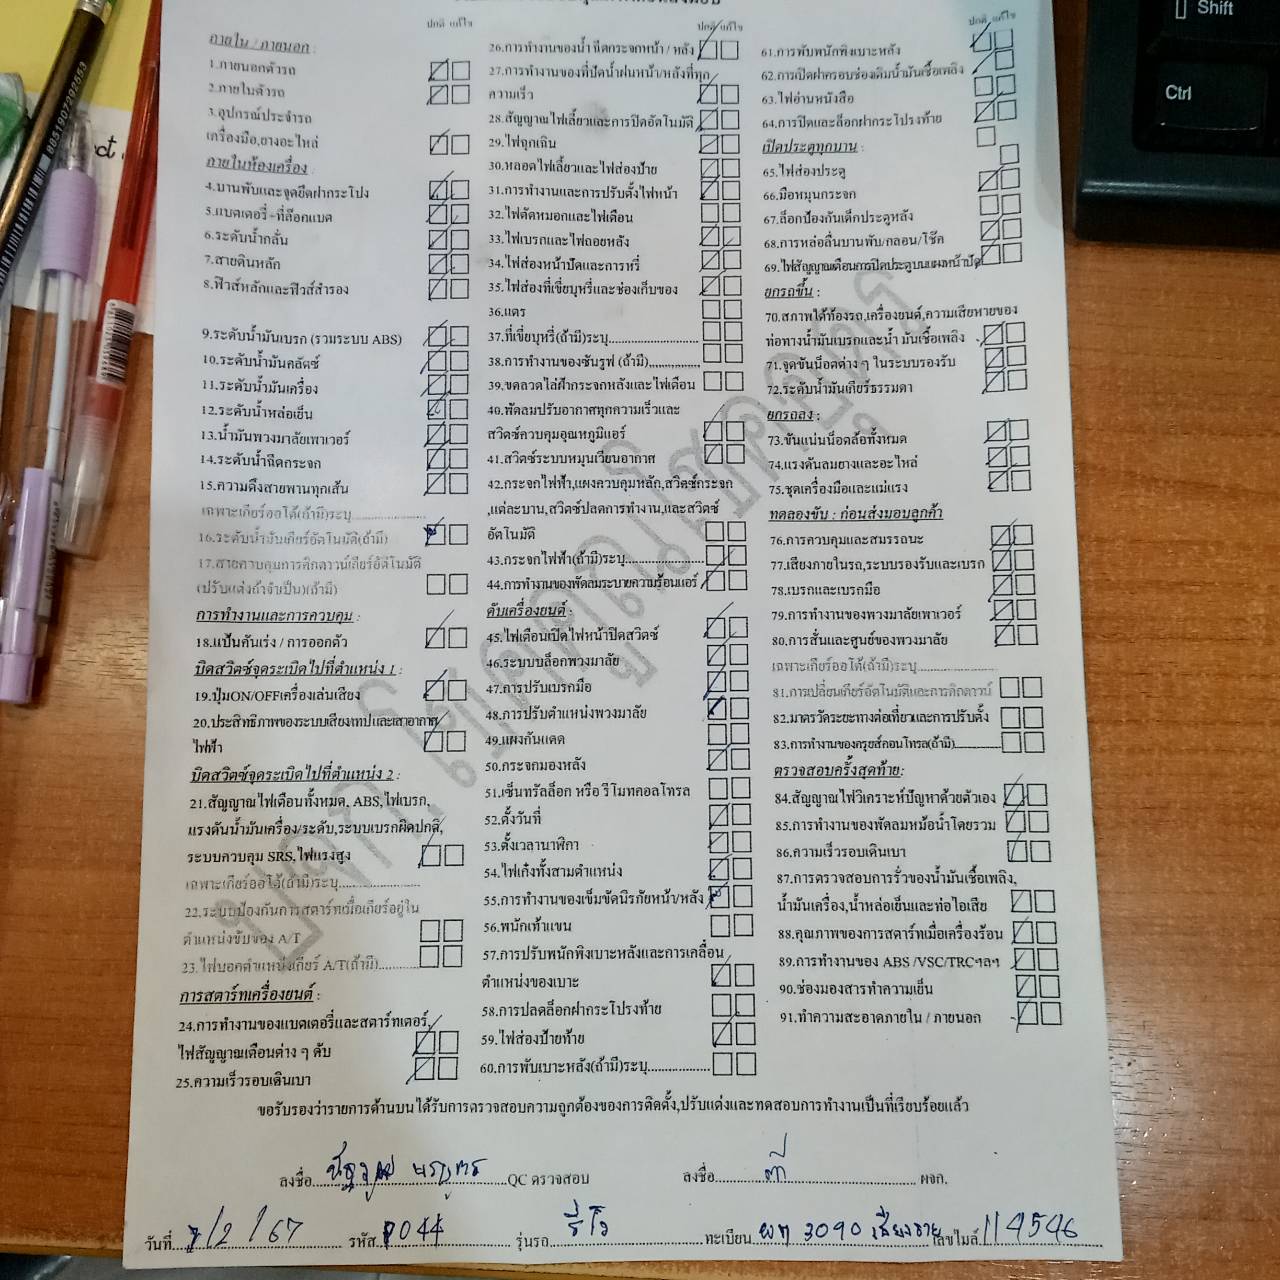 Shift
Ctrl
8851907292553
ปกติ แก้ไข
ภายใน / ภายนอก :
1.ภายนอกตัวรถ
2.ภายในตัวรถ
3.อุปกรณ์ประจำรถ
เครื่องมือ,ยางอะไหล่
ภายในห้องเครื่อง :
4.บานพับและจุดยึดฝากระโปง
5.แบตเตอรี่-ที่ล็อกแบต
6.ระดับน้ำกลั่น
7.สายดินหลัก
8.ฟิวส์หลักและฟิวส์สำรอง
9.ระดับน้ำมันเบรก (รวมระบบ ABS)
10.ระดับน้ำมันคลัตซ์
11.ระดับน้ำมันเครื่อง
12.ระดับน้ำหล่อเย็น
13.น้ำมันพวงมาลัยเพาเวอร์
14.ระดับน้ำฉีดกระจก
15.ความตึงสายพานทุกเส้น
เฉพาะเกียร์ออโต้(ถ้ามี)ระบุ
16.ระดับน้ำมันเกียร์อัตโนมัติ(ถ้ามี)
17.สายควบคุมการคิกดาวน์เกียร์อัตโนมัติ
(ปรับแต่งถ้าจำเป็น)(ถ้ามี)
การทำงานและการควบคุม :
18.แป้นคันเร่ง / การออกตัว
บิดสวิตซ์จุดระเบิดไปที่ตำแหน่ง 1 :
19.ปุ่มON/OFFเครื่องเล่นเสียง
20.ประสิทธิภาพของระบบเสียงเทปและเสาอากาศ
ไฟฟ้า
บิดสวิตซ์จุดระเบิดไปที่ตำแหน่ง 2 :
21.สัญญาณไฟเตือนทั้งหมด, ABS,ไฟเบรก,
แรงดันน้ำมันเครื่อง/ระดับ,ระบบเบรกผิดปกติ,
ระบบควบคุม SRS,ไฟแรงสูง
เฉพาะเกียร์ออโต้(ถ้ามี)ระบุ
22.ระบบป้องกันการสตาร์ทเมื่อเกียร์อยู่ใน
ตำแหน่งขับของ A/T
23.ไฟบอกตำแหน่งเกียร์ A/T(ถ้ามี)
การสตาร์ทเครื่องยนต์ :
24.การทำงานของแบตเตอรี่และสตาร์ทเตอร์,
ไฟสัญญาณเตือนต่าง ๆ ดับ
25.ความเร็วรอบเดินเบา
ปกติ แก้ไข
26.การทำงานของน้ำ ฉีดกระจกหน้า / หลัง
27.การทำงานของที่ปัดน้ำฝนหน้า/หลังที่ทุก
ความเร็ว
28.สัญญาณไฟเลี้ยวและการปิดอัตโนมัติ
29.ไฟฉุกเฉิน
30.หลอดไฟเลี้ยวและไฟส่องป้าย
31.การทำงานและการปรับตั้งไฟหน้า
32.ไฟตัดหมอกและไฟเตือน
33.ไฟเบรกและไฟถอยหลัง
34.ไฟส่องหน้าปัดและการหรี่
35.ไฟส่องที่เขี่ยบุหรี่และช่องเก็บของ
36.แตร
37.ที่เขี่ยบุหรี่(ถ้ามี)ระบุ
38.การทำงานของซันรูฟ (ถ้ามี)
39.ขดลวดไล่ฝ้ากระจกหลังและไฟเตือน
40.พัดลมปรับอากาศทุกความเร็วและ
สวิตซ์ควบคุมอุณหภูมิแอร์
41.สวิตซ์ระบบหมุนเวียนอากาศ
42.กระจกไฟฟ้า,แผงควบคุมหลัก,สวิตซ์กระจก
,แต่ละบาน,สวิตซ์ปลดการทำงาน,และสวิตซ์
อัตโนมัติ
43.กระจกไฟฟ้า(ถ้ามี)ระบุ
44.การทำงานของพัดลมระบายความร้อนแอร์
ดับเครื่องยนต์ :
45.ไฟเตือนเปิดไฟหน้าปิดสวิตซ์
46.ระบบบล็อกพวงมาลัย
47.การปรับเบรกมือ
48.การปรับตำแหน่งพวงมาลัย
49.แผงกันแดด
50.กระจกมองหลัง
51.เซ็นทรัลล็อก หรือ รีโมทคอลโทรล
52.ตั้งวันที่
53.ตั้งเวลานาฬิกา
54.ไฟเก๋งทั้งสามตำแหน่ง
55.การทำงานของเข็มขัดนิรภัยหน้า/หลัง
56.พนักเท้าแขน
57.การปรับพนักพิงเบาะหลังและการเคลื่อน
ตำแหน่งของเบาะ
58.การปลดล็อกฝากระโปรงท้าย
59.ไฟส่องป้ายท้าย
60.การพับเบาะหลัง(ถ้ามี)ระบุ
ปกติ แก้ไข
61.การพับพนักพิงเบาะหลัง
62.การเปิดฝาครอบช่องเติมน้ำมันเชื้อเพลิง
63.ไฟอ่านหนังสือ
64.การปิดและล็อกฝากระโปรงท้าย
เปิดประตูทุกบาน :
65.ไฟส่องประตู
66.มือหมุนกระจก
67.ล็อกป้องกันเด็กประตูหลัง
68.การหล่อลื่นบานพับ/กลอน/โช๊ค
69.ไฟสัญญาณเตือนการปิดประตูบนแผงหน้าปัด
ยกรถขึ้น :
70.สภาพใต้ท้องรถ,เครื่องยนต์,ความเสียหายของ
ท่อทางน้ำมันเบรกและน้ำ มันเชื้อเพลิง
71.จุดขันน็อตต่าง ๆ ในระบบรองรับ
72.ระดับน้ำมันเกียร์ธรรมดา
ยกรถลง :
73.ขันแน่นน็อตล้อทั้งหมด
74.แรงดันลมยางและอะไหล่
75.ชุดเครื่องมือและแม่แรง
ทดลองขับ : ก่อนส่งมอบลูกค้า
76.การควบคุมและสมรรถนะ
77.เสียงภายในรถ,ระบบรองรับและเบรก
78.เบรกและเบรกมือ
79.การทำงานของพวงมาลัยเพาเวอร์
80.การสั่นและศูนย์ของพวงมาลัย
เฉพาะเกียร์ออโต้(ถ้ามี)ระบุ
81.การเปลี่ยนเกียร์อัตโนมัติและการคิกดาวน์
82.มาตรวัดระยะทางต่อเที่ยวและการปรับตั้ง
83.การทำงานของครุยส์คอนโทรล(ถ้ามี)
ตรวจสอบครั้งสุดท้าย:
84.สัญญาณไฟวิเคราะห์ปัญหาด้วยตัวเอง
85.การทำงานของพัดลมหม้อน้ำโดยรวม
86.ความเร็วรอบเดินเบา
87.การตรวจสอบการรั่วของน้ำมันเชื้อเพลิง,
น้ำมันเครื่อง,น้ำหล่อเย็นและท่อไอเสีย
88.คุณภาพของการสตาร์ทเมื่อเครื่องร้อน
89.การทำงานของ ABS /VSC/TRCฯลฯ
90.ช่องมองสารทำความเย็น
91.ทำความสะอาดภายใน / ภายนอก
ขอรับรองว่ารายการด้านบนได้รับการตรวจสอบความถูกต้องของการติดตั้ง,ปรับแต่งและทดสอบการทำงานเป็นที่เรียบร้อยแล้ว
ลงชื่อ QC ตรวจสอบ ลงชื่อ ผจก.
วันที่ 7/2/67 รหัส P044 รุ่นรถ รีโว่ ทะเบียน ผก 3090 เชียงราย เลขไมล์ 114546